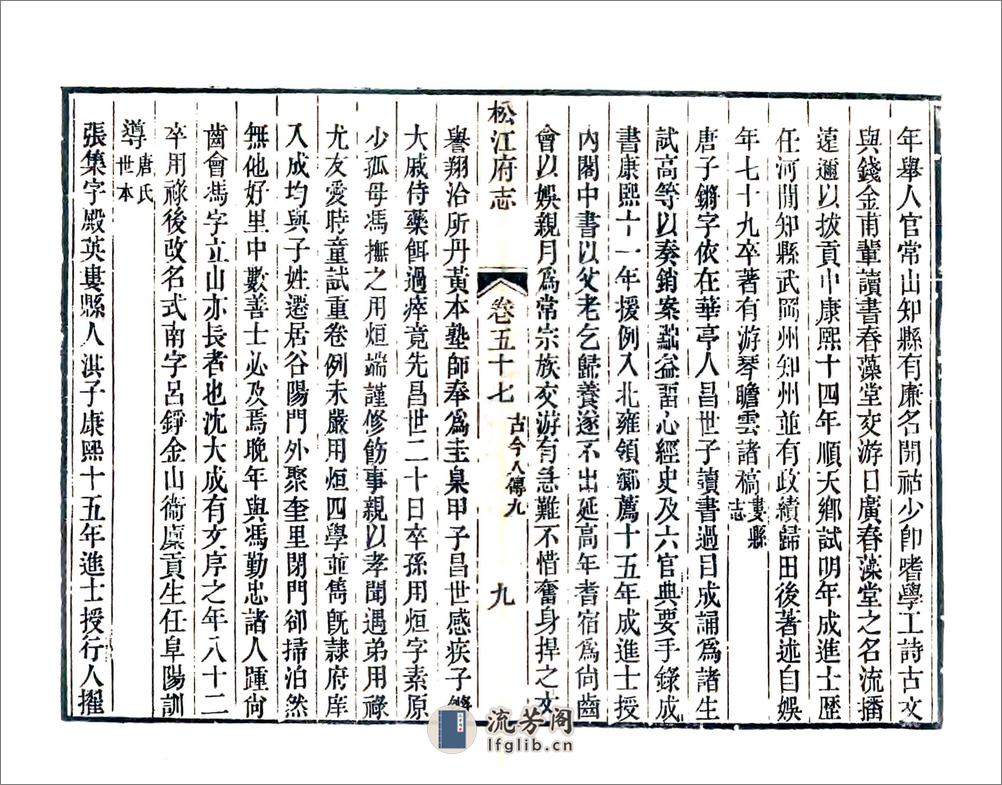 年舉人官常山知縣有廉名開祜少卽嗜學工詩古文
與錢金甫輩讀書春藻堂交游日廣春藻堂之名流播
遠邇以拔貢中康熙十四年順天鄉試明年成進士歷
任河間知縣武岡州知州並有政績歸田後著述自娛
年七十九卒著有游琴瞻雲諸稿婁縣志
唐子鏘字依在華亭人昌世子讀書過目成誦爲諸生
試高等以奏銷案黜益留心經史及六官典要手錄成
書康熙十一年援例入北雍領鄉薦十五年成進士授
內閣中書以父老乞歸養遂不出延高年耆宿爲尙齒
會以娛親月爲常宗族交游有急難不惜奮身捍之文
松江府志 卷五十七 古今人傳九 九
譽翔洽所丹黃本塾師奉爲圭臬甲子昌世感疾子鏘
大戚侍藥餌過瘁竟先昌世二十日卒孫用烜字素原
少孤母馮撫之用烜端謹修飭事親以孝聞遇弟用祿
尤友愛時童試重卷例未嚴用烜四學並雋旣隷府庠
入成均與子姓遷居谷陽門外聚奎里閉門卻掃泊然
無他好里中數善士必及焉晚年與馮勤忠諸人踵尙
齒會馮字立山亦長者也沈大成有文序之年八十二
卒用祿後改名式南字呂錚金山衞廩貢生任阜陽訓
導唐氏世本
張集字殿英婁縣人淇子康熙十五年進士授行人擢
流芳阁
lfglib.cn